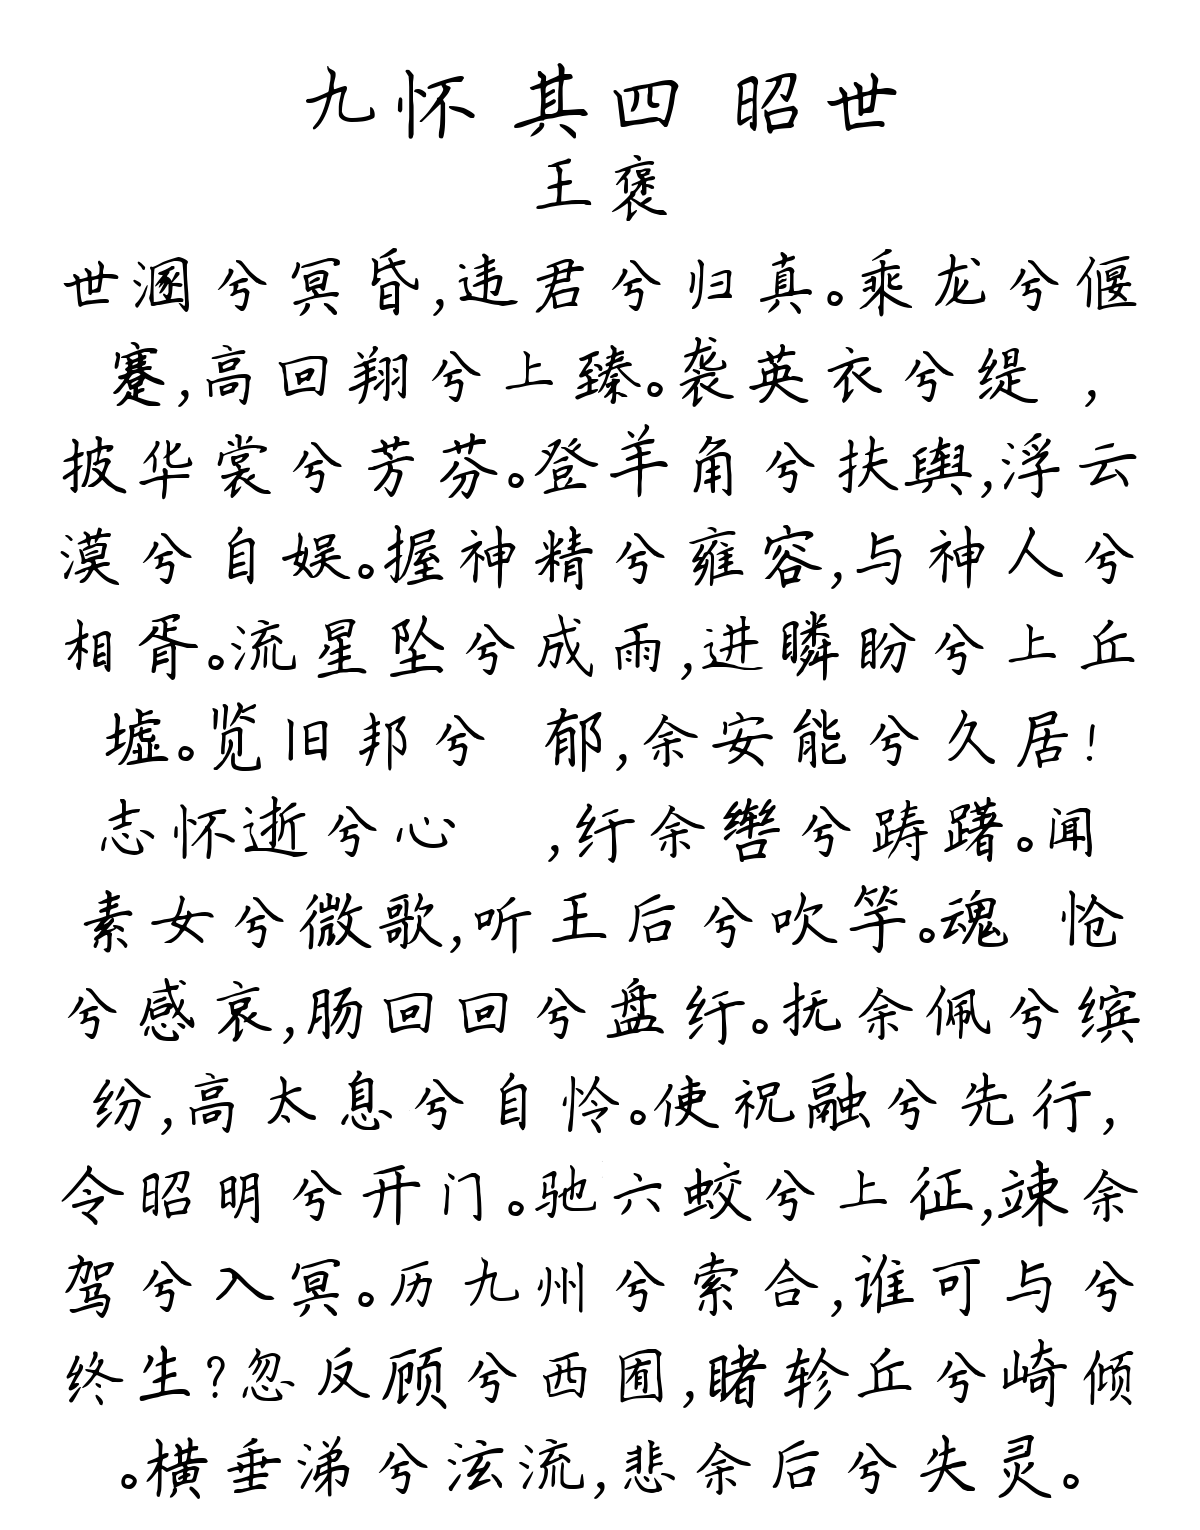 九怀 其四 昭世
王褒
世溷兮冥昏,违君兮归真。乘龙兮偃
蹇,高回翔兮上臻。袭英衣兮缇 ,
披华裳兮芳芬。登羊角兮扶舆,浮云
漠兮自娱。握神精兮雍容,与神人兮
相胥。流星坠兮成雨,进瞵盼兮上丘
墟。览旧邦兮 郁,余安能兮久居!
志怀逝兮心 ,纡余辔兮踌躇。闻
素女兮微歌,听王后兮吹竽。魂 怆
兮感哀,肠回回兮盘纡。抚余佩兮缤
纷,高太息兮自怜。使祝融兮先行,
令昭明兮开门。驰六蛟兮上征,竦余
驾兮入冥。历九州兮索合,谁可与兮
终生?忽反顾兮西囿,睹轸丘兮崎倾
。横垂涕兮泫流,悲余后兮失灵。